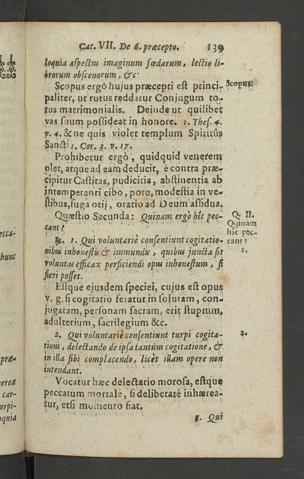 Cat. VII. De 6. præcepto. 139
loquia aspectus imaginum fœdarum, lectio li-
brorum obscenorum, &c
Scopus ergò hujus præcepti est princi-
paliter, ut tutus reddatur Conjugum to-
rus matrimonialis. Deinde ut quilibet
vas suum possideat in honore. 1. Thes. 4.
v. 4. & ne quis violet templum Spiritus
Sancti 1. Cor. 3. v. 17.
Scopus.
Prohibetur ergò, quidquid venerem
olet, atque ad eam deducit, è contra præ-
cipitur Castitas, pudicitia, abstinentia ab
intemperanti cibo, potu, modestia in ve-
stibus, fuga otij, oratio ad Deum assidua.
Quæstio Secunda: Quinam ergò hîc pec-
cant?
Q. II.
Quinam
hîc pec-
cant?
℟. 1. Qui voluntariè consentiunt cogitatio-
nibus inhonestis & immundis, quibus juncta sit
voluntas efficax perficiendi opus inhonestum, si
fieri posset.
1.
Estque ejusdem speciei, cujus est opus
v. g. si cogitatio feratur in solutam, con-
jugatam, personam sacram, erit stuprum,
adulterium, sacrilegium &c.
2. Qui voluntariè consentiunt turpi cogita-
tioni, delectando de ipsa tantùm cogitatione, &
in illa sibi complacendo, licèt illam opere non
intendant.
2.
Vocatur hæc delectatio morosa, estque
peccatum mortale, si deliberatè inhærea-
tur, etsi momento fiat.
3. Qui